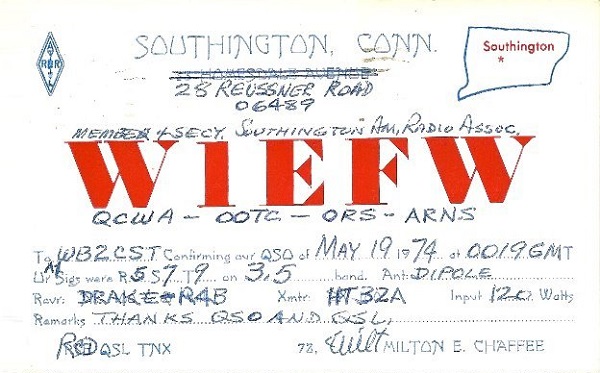 SOUTHINGTON, CONN.
Southington
28 REUSSNER ROAD
06489
MEMBER & SECY. SOUTHINGTON AM. RADIO ASSOC.
W1EFW
QCWA - OOTC - ORS - ARNS
To WB2CST Confirming our QSO of MAY 19 1974 at 0019 GMT
Ur Sigs were R 5 S 7 T 9 on 3.5 band. Ant: DIPOLE
Rcvr: DRAKE R4B Xmtr: HT32A Input 120 Watts
Remarks THANKS QSO AND QSL,
QSL TNX 73, Milt MILTON E. CHAFFEE